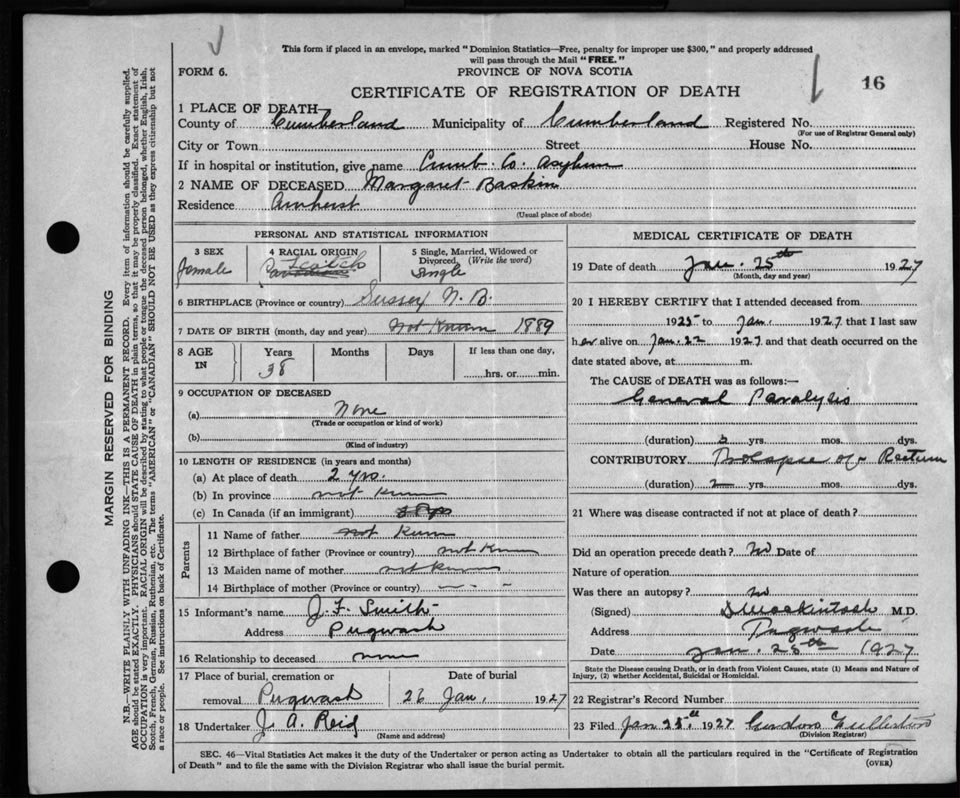 This form if placed in an envelope, marked "Dominion Statistics—Free, penalty for improper use $300," and properly addressed
will pass through the Mail "FREE."
FORM 6.
PROVINCE OF NOVA SCOTIA
CERTIFICATE OF REGISTRATION OF DEATH
16
1 PLACE OF DEATH—
County of Cumberland Municipality of Cumberland Registered No.
(For use of Registrar General only)
City or Town Street House No.
If in hospital or institution, give name Cumb. Co. Asylum
2 NAME OF DECEASED Margaret Baskin
Residence Amherst
(Usual place of abode)
PERSONAL AND STATISTICAL INFORMATION
3 SEX
Female
4 RACIAL ORIGIN
Scotch
5 Single, Married, Widowed or
Divorced, (Write the word)
Single
6 BIRTHPLACE (Province or country) Sussex N. B.
7 DATE OF BIRTH (month, day and year) not Known 1889
8 AGE IN
Years Months Days If less than one day,
38
hrs. or min.
9 OCCUPATION OF DECEASED
(a) None
(Trade or occupation or kind of work)
(b)
(Kind of industry)
10 LENGTH OF RESIDENCE (in years and months)
(a) At place of death 2 yrs.
(b) In province not known
(c) In Canada (if an immigrant)
Parents
11 Name of father not Known
12 Birthplace of father (Province or country) not Known
13 Maiden name of mother not known
14 Birthplace of mother (Province or country) — - -
15 Informant's name J. F. Smith
Address Pugwash
16 Relationship to deceased none
17 Place of burial, cremation or Date of burial
removal Pugwash 26 Jan. 1927
18 Undertaker J. A. Reid
(Name and address)
MEDICAL CERTIFICATE OF DEATH
19 Date of death Jan. 25th 1927
(Month, day and year)
20 I HEREBY CERTIFY that I attended deceased from
1925 to Jan. 1927 that I last saw
her alive on Jan. 22 1927 and that death occurred on the
date stated above, at m.
The CAUSE of DEATH was as follows:—
General Paralysis
(duration) yrs. mos. dys.
CONTRIBUTORY Prolapse of Rectum
(duration) 2 yrs. mos. dys.
21 Where was disease contracted if not at place of death?
Did an operation precede death? no Date of
Nature of operation
Was there an autopsy? no
(Signed) Mackintosh M.D.
Address Pugwash
Date Jan. 25th 1927
State the Disease causing Death, or in death from Violent Causes, state (1) Means and Nature of
Injury, (2) whether Accidental, Suicidal or Homicidal.
22 Registrar's Record Number
23 Filed Jan 25th 1927
(Division Registrar)
SEC. 46—Vital Statistics Act makes it the duty of the Undertaker or person acting as Undertaker to obtain all the particulars required in the "Certificate of Registration
of Death" and to file the same with the Division Registrar who shall issue the burial permit.
(OVER)
MARGIN RESERVED FOR BINDING
N.B.—WRITE PLAINLY WITH UNFADING INK—THIS IS A PERMANENT RECORD. Every item of information should be carefully supplied.
AGE should be stated EXACTLY. PHYSICIANS should STATE CAUSE OF DEATH in plain terms, so that it may be properly classified. Exact statement of
OCCUPATION is very important. RACIAL ORIGIN will be described by stating to what people or tongue the deceased person belonged, whether English, Irish,
Scotch, French, German, Russian, Ruthenian, etc. The terms "AMERICAN" or "CANADIAN" SHOULD NOT BE USED as they express citizenship but not
a race or people. See instructions on back of Certificate.